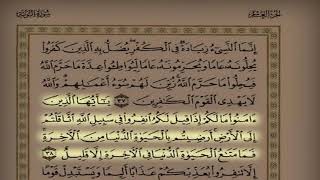 الجزء العاشر
سورة التوبة
إِنَّمَا ٱلنَّسِىٓءُ زِيَادَةٌ فِى ٱلْكُفْرِ يُضَلُّ بِهِ ٱلَّذِينَ كَفَرُوا۟
يُحِلُّونَهُۥ عَامًا وَيُحَرِّمُونَهُۥ عَامًا لِّيُوَاطِـُٔوا۟ عِدَّةَ مَا حَرَّمَ ٱللَّهُ
فَيُحِلُّوا۟ مَا حَرَّمَ ٱللَّهُ زُيِّنَ لَهُمْ سُوٓءُ أَعْمَـٰلِهِمْ وَٱللَّهُ
لَا يَهْدِى ٱلْقَوْمَ ٱلْكَـٰفِرِينَ ٣٧ يَـٰٓأَيُّهَا ٱلَّذِينَ
ءَامَنُوا۟ مَا لَكُمْ إِذَا قِيلَ لَكُمُ ٱنفِرُوا۟ فِى سَبِيلِ ٱللَّهِ ٱثَّاقَلْتُمْ
إِلَى ٱلْأَرْضِ أَرَضِيتُم بِٱلْحَيَوٰةِ ٱلدُّنْيَا مِنَ ٱلْـَٔاخِرَةِ
فَمَا مَتَـٰعُ ٱلْحَيَوٰةِ ٱلدُّنْيَا فِى ٱلْـَٔاخِرَةِ إِلَّا قَلِيلٌ ٣٨
إِلَّا تَنفِرُوا۟ يُعَذِّبْكُمْ عَذَابًا أَلِيمًا وَيَسْتَبْدِلْ قَوْمًا